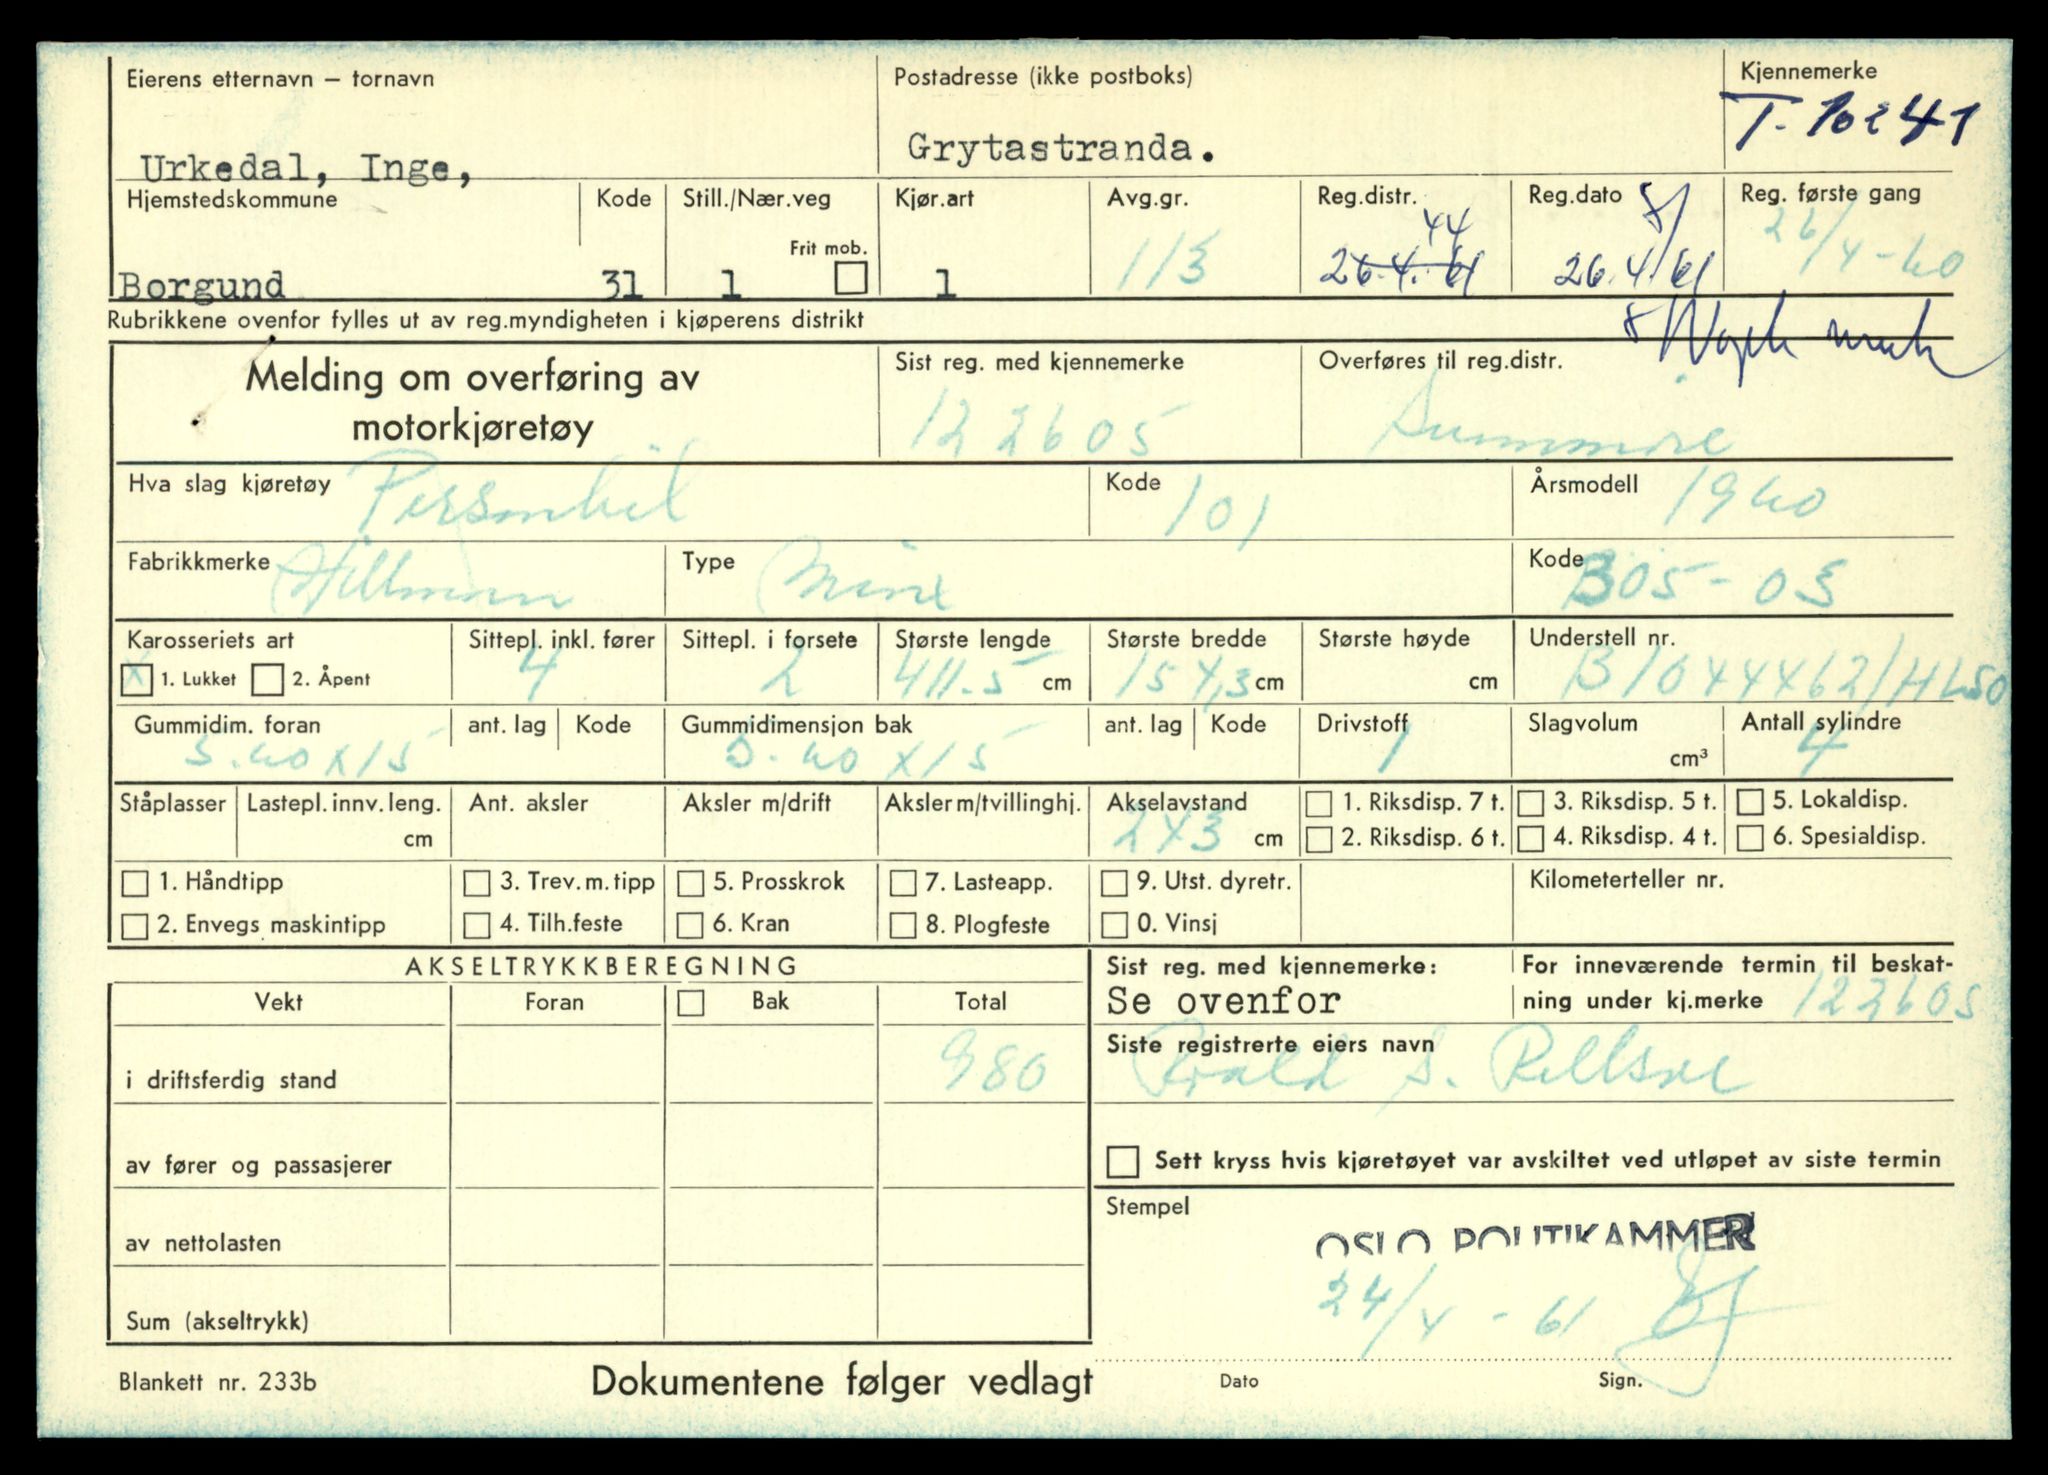 Eierens etternavn – fornavn
Postadresse (ikke postboks)
Kjennemerke
T. 10241
Urkedal, Inge,
Grytastranda.
Hjemstedskommune
Kode
Still./Nær.veg
Kjør.art
Avg.gr.
Reg.distr.
Reg.dato
Reg. første gang
Frit mob.
44
8/
Borgund
31
1
1
113
26.4.61
26.4.61
26/4-60
Rubrikkene ovenfor fylles ut av reg.myndigheten i kjøperens distrikt
Melding om overføring av
motorkjøretøy
Sist reg. med kjennemerke
122605
Overføres til reg.distr.
Sunnmøre
Hva slag kjøretøy Personbil
Kode 101
Årsmodell 1960
Fabrikkmerke Hillman
Type Minx
Kode B05-03
Karosseriets art
Sittepl. inkl. fører
Sittepl. i forsete
Største lengde
Største bredde
Største høyde
Understell nr.
X 1. Lukket 2. Åpent
4
2
411.5 cm
154,3 cm
cm
B1044462/HLSO
Gummidim. foran
ant. lag
Kode
Gummidimensjon bak
ant. lag
Kode
Drivstoff
Slagvolum
Antall sylindre
5.60 x 15
5.60 x 15
1
cm³
4
Ståplasser
Lastepl. innv. leng.
Ant. aksler
Aksler m/drift
Aksler m/tvillinghj.
Akselavstand
1. Riksdisp. 7 t.
3. Riksdisp. 5 t.
5. Lokaldisp.
cm
243 cm
2. Riksdisp. 6 t.
4. Riksdisp. 4 t.
6. Spesialdisp.
1. Håndtipp
3. Trev. m. tipp
5. Prosskrok
7. Lasteapp.
9. Utst. dyretr.
Kilometerteller nr.
2. Envegs maskintipp
4. Tilh.feste
6. Kran
8. Plogfeste
0. Vinsj
AKSELTRYKKBEREGNING
Vekt
Foran
Bak
Total
i driftsferdig stand
980
av fører og passasjerer
av nettolasten
Sum (akseltrykk)
Sist reg. med kjennemerke:
Se ovenfor
For inneværende termin til beskat-
ning under kj.merke 122605
Siste registrerte eiers navn
S.
Sett kryss hvis kjøretøyet var avskiltet ved utløpet av siste termin
Stempel
OSLO POLITIKAMMER
24/4-61
Dato
Sign.
Blankett nr. 233b
Dokumentene følger vedlagt